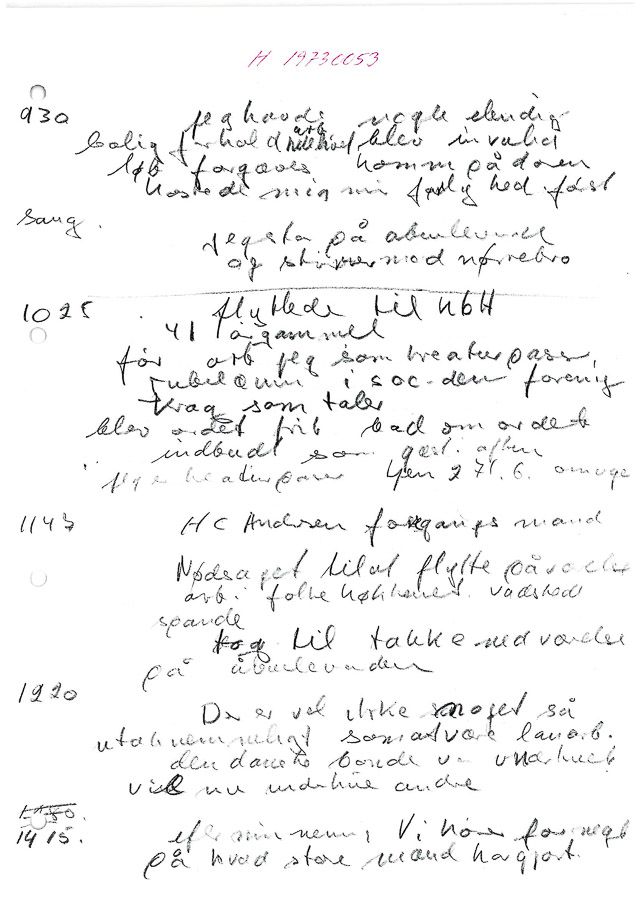 H 1973CC53
930 jeg havde nogle elendig
bolig forhold arb blev invalid
løb forgæves komm på døren
hostede mig min fast
sang.
jegsta på abulevard
og stirrer mod nørrebro
1025. flyttede til NbH
41 år gammel
før arb jeg som kreaturpasser
Jubilæum i soc-dem forenig
Krag som taler
blev ordet frit bad om ordet
indbudt som gæst. aften
jeg er kreaturpasser 4 en 2 omuge
1143 HC Andersen foregangs mand
Nødsaget til at flytte på
arb. i folke køkkenet. vadsked
spande
tog til takke med værelse
på åbulevarden
1220 Der er vel ikke noget så
utaknemmeligt som at være lanarb.
den danske bonde underkuet
vil nu underkue andre
1350.
1415. efter min mening Vi hører for meget
på hvad store mænd har gjort.